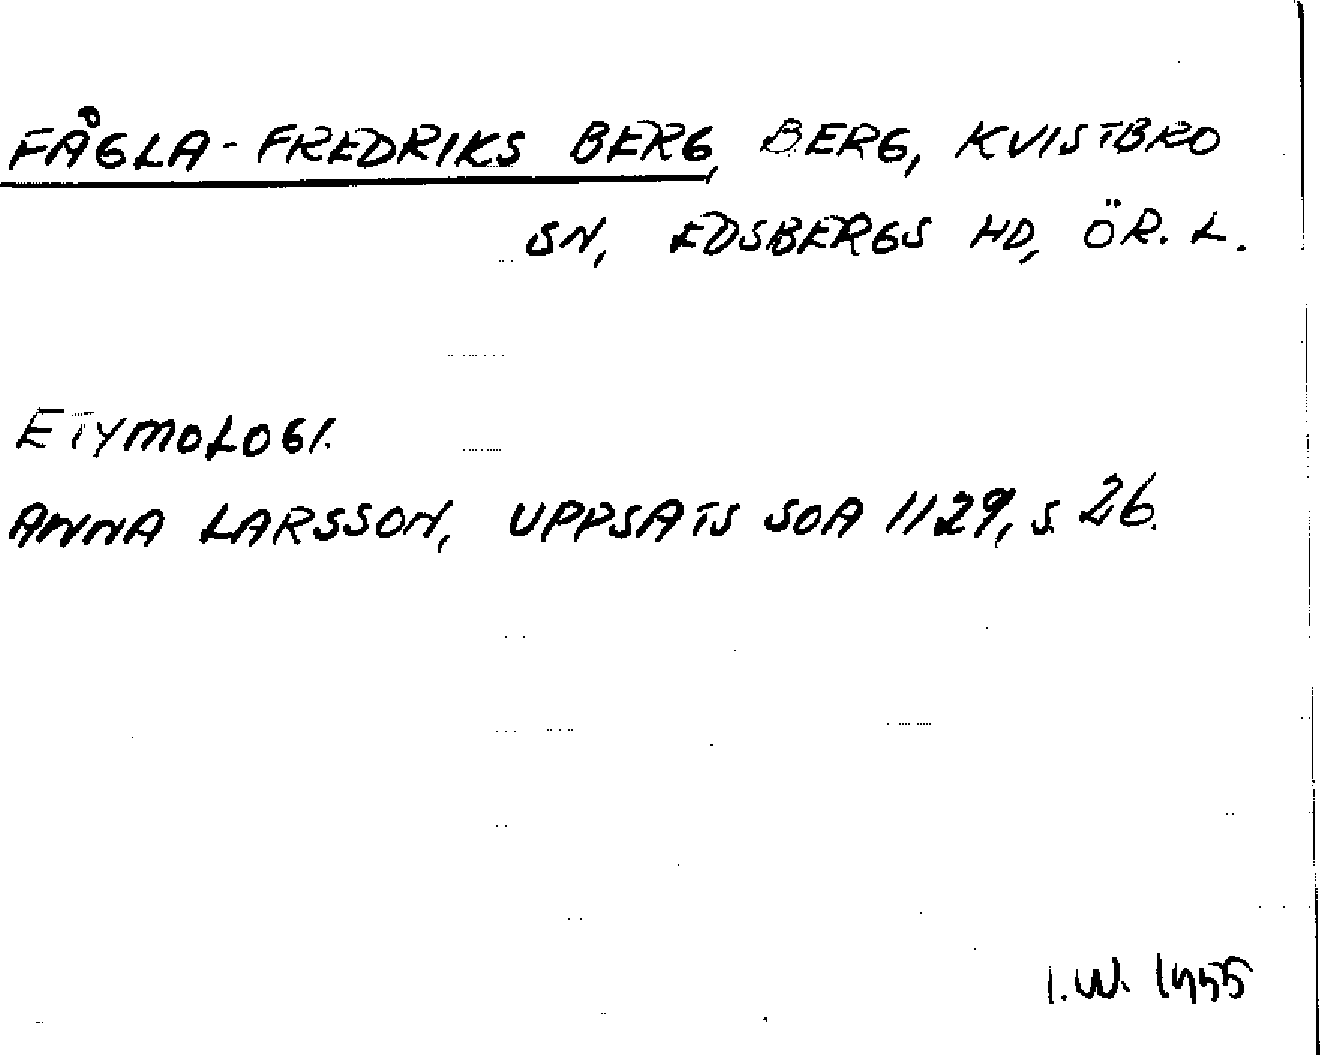 FÅGLA-FREDRIKS BERG, BERG, KVISTBRO
SN, EDSBERGS HD, ÖR. L.
ETYMOLOGI.
ANNA LARSSON, UPPSATS SOA 1129, S. 26.
I.W. 1955